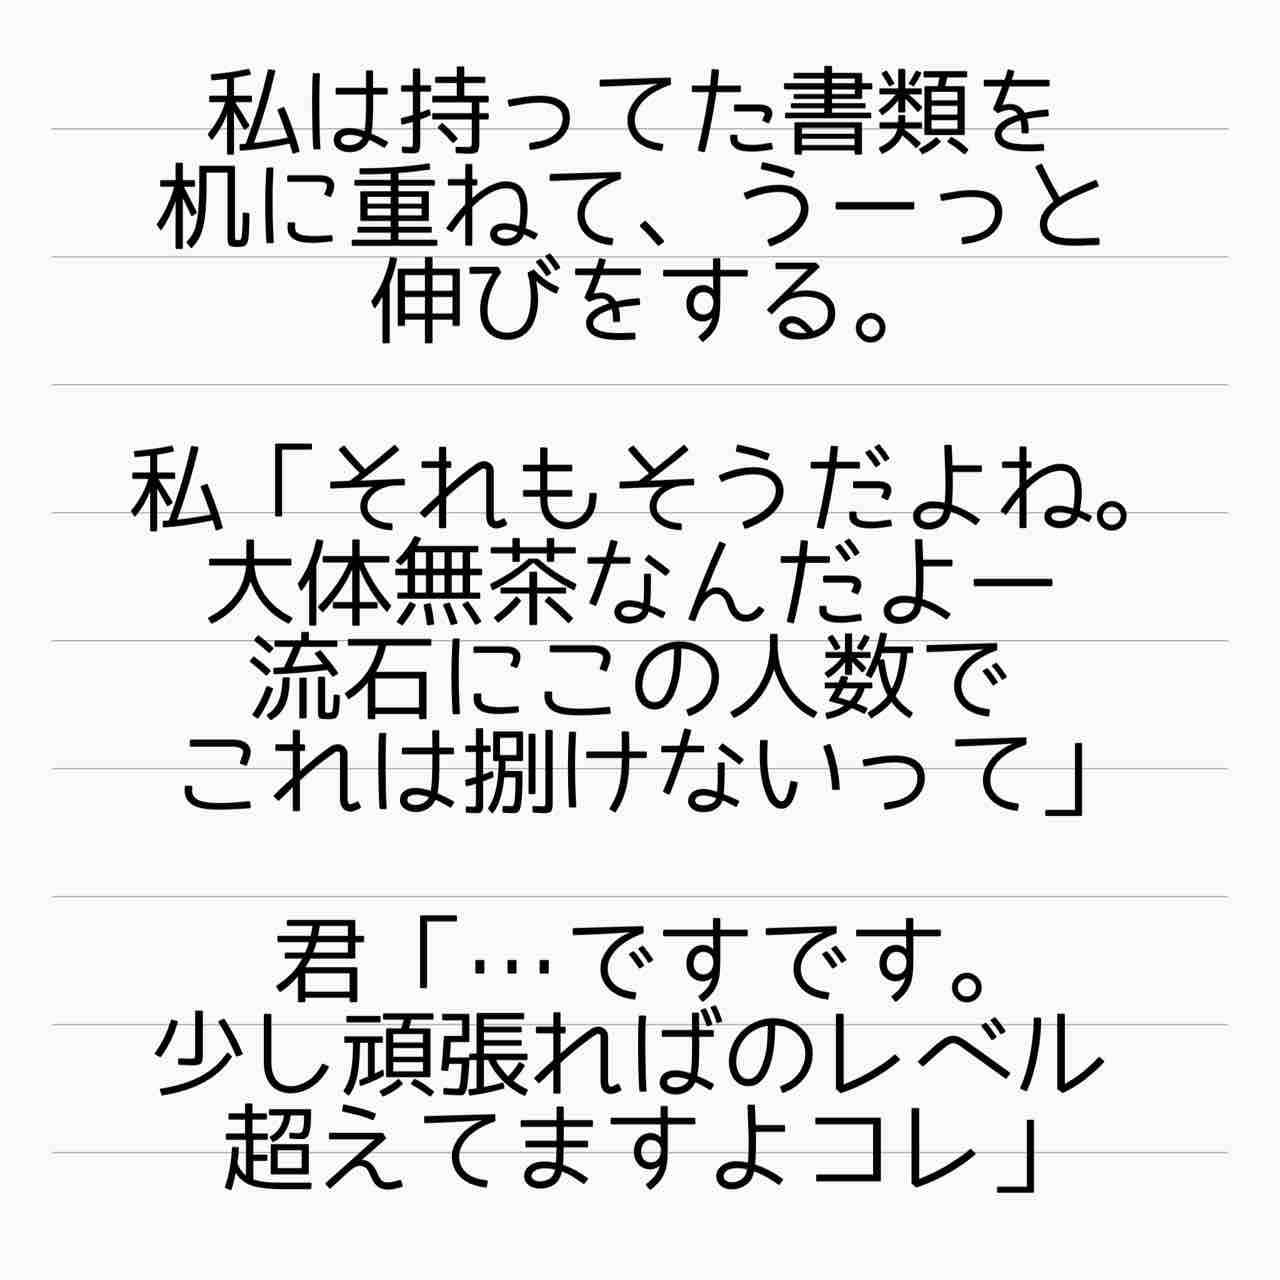 私は持ってた書類を
机に重ねて、うーっと
伸びをする。
私「それもそうだよね。
大体無茶なんだよー
流石にこの人数で
これは捌けないって」
君「…ですです。
少し頑張ればのレベル
超えてますよコレ」